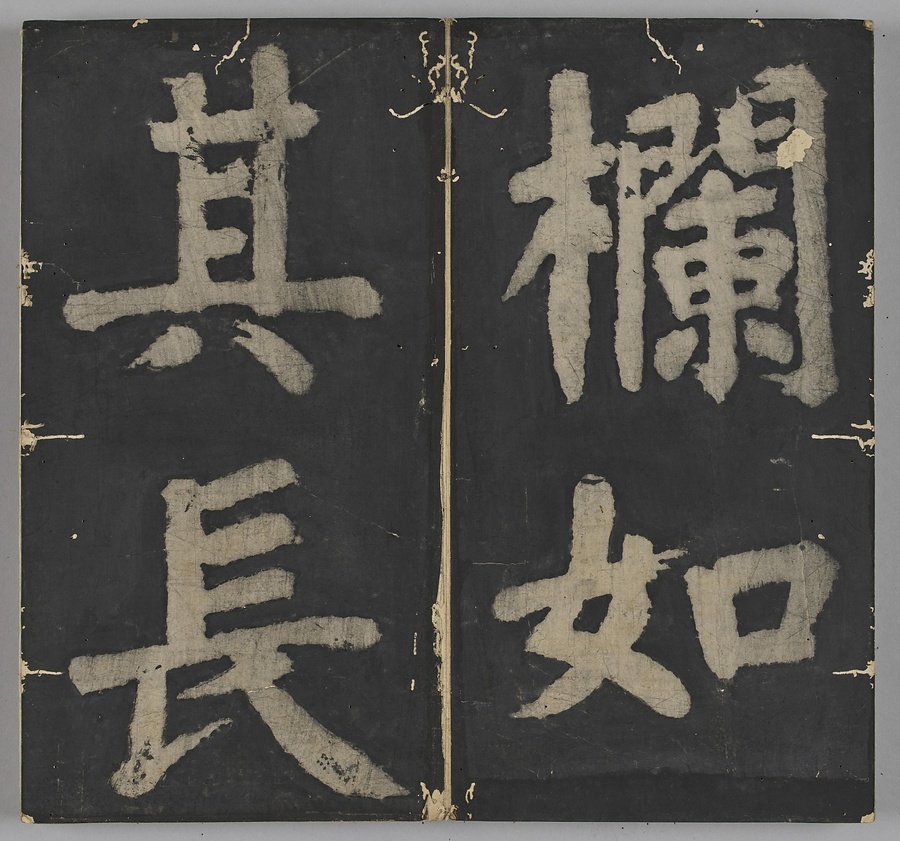 欄如
其長